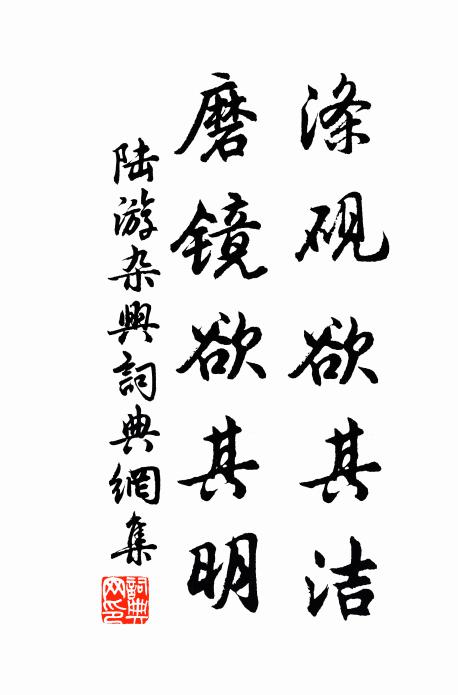 涤砚欲其洁
磨镜欲其明
陆游杂興詞典網集
詞典网印